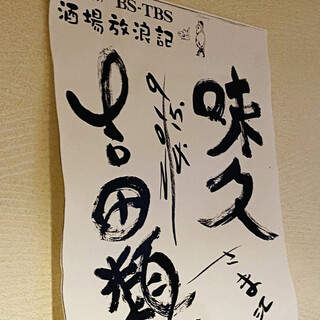 BS-TBS
酒場放浪記
味久
さま江
吉田類